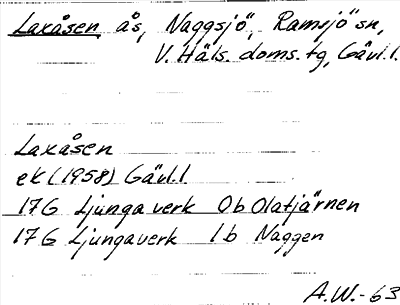 Laxåsen, ås, Naggsjö, Ramsjö sn,
V. Häls. doms. tg, Gävl. l.
Laxåsen
ek (1958) Gävl. l
17G Ljungaverk 0b Olatjärnen
17G Ljungaverk 1b Naggen
A.W.-63